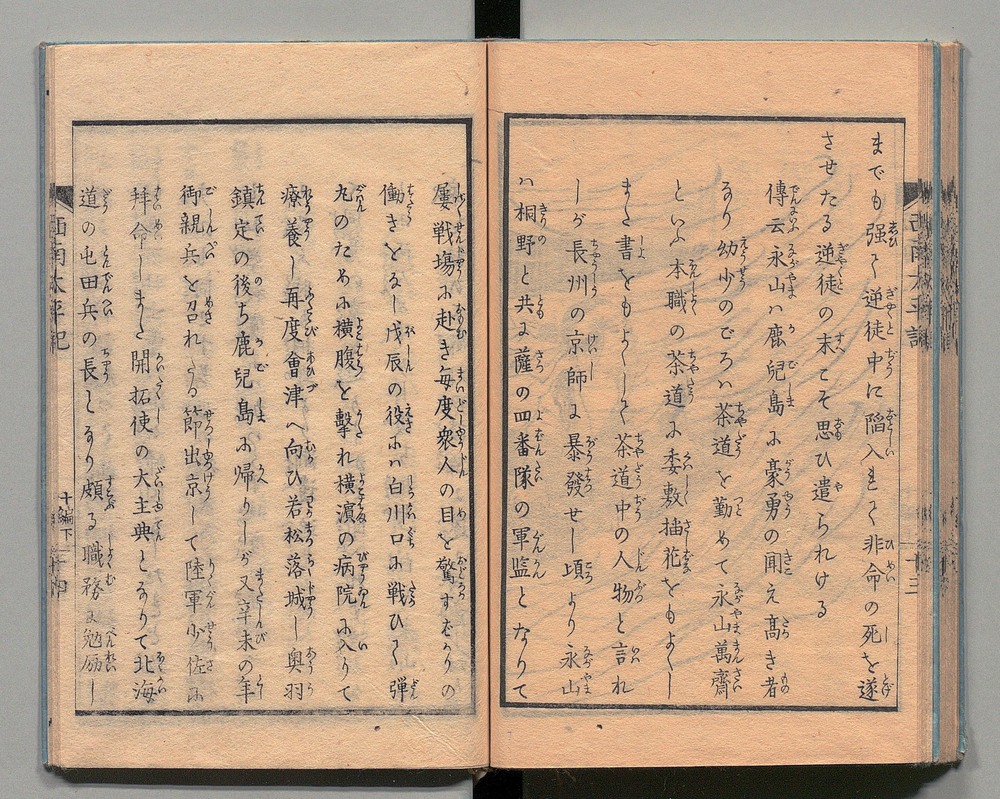 までも強て逆徒中に陥入まで非命の死を遂
させたる逆徒の末こそ思ひ遣られける
傳云永山ハ鹿兒島に豪勇の聞え髙き者
なり幼少のころハ茶道を勤めて永山萬齋
といふ本職の茶道に委敷揷花をもよくし
また書をもよくして茶道中の人物と言れ
しが長州の京師に暴發せし頃より永山
ハ桐野と共に薩の四番隊の軍監となりて
屡戦塲に赴き毎度衆人の目を驚すばかりの
働きをなし戊辰の役にハ白川口に戦ひて弾
丸のために横腹を擊れ横濵の病院に入りて
療養し再度會津へ向ひ若松落城し奥羽
鎮定の後ち鹿兒島に帰りしが又辛未の年
御親兵を召れたる節出京して陸軍少佐に
拜命しまた開拓使の大主典となりて北海
道の屯田兵の長となり頗る職務に勉励し
西南太平記
十三
西南太平記
十編下
十四